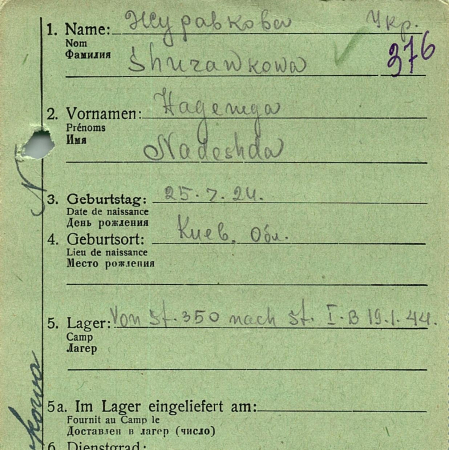 1. Name: Журавкова Укр.
Nom
Фамилия Shurawkowa 376
2. Vornamen: Надежда
Prénoms
Имя Nadeshda
3. Geburtstag: 25.7.24.
Date de naissance
День рождения
4. Geburtsort: Киев. Обл.
Lieu de naissance
Место рождения
5. Lager: Von St. 350 nach St. I-B 19.1.44.
Camp
Лагерь
5a. Im Lager eingeliefert am:
Fournit au Camp le
Доставлен в лагерь (число)
6. Dienstgrad: